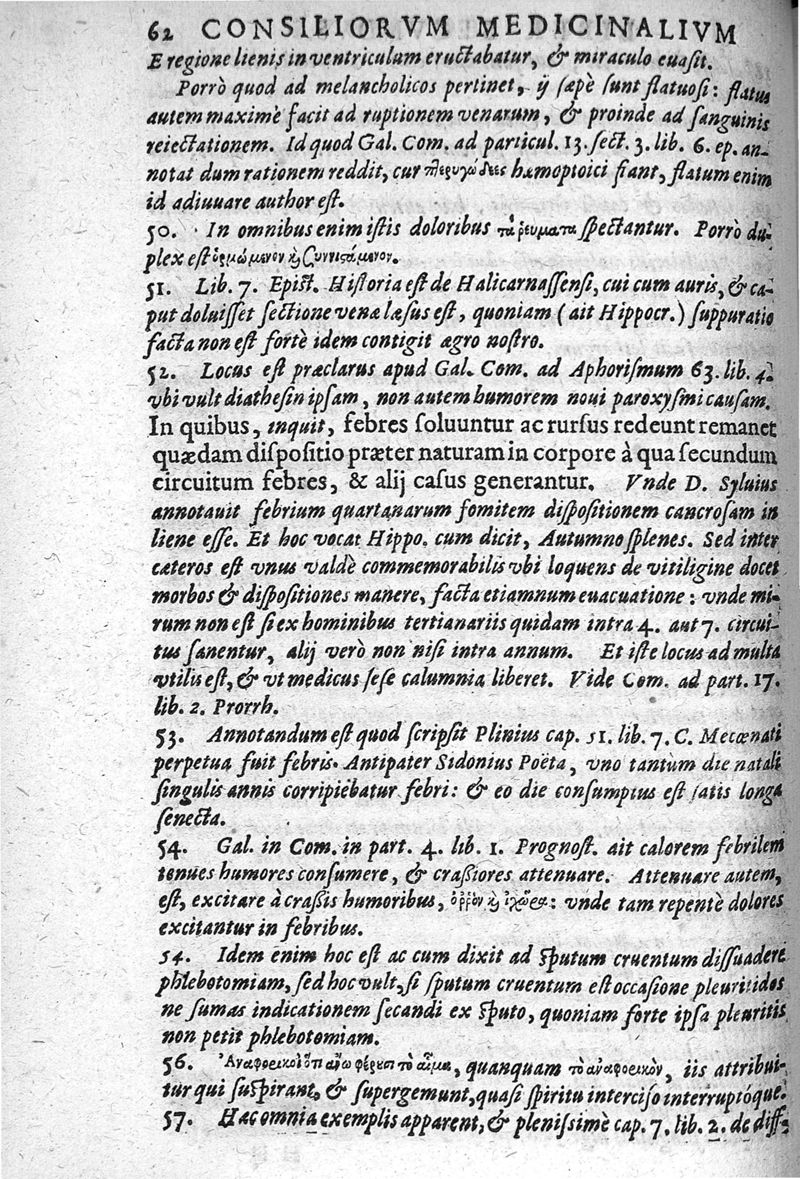 62 CONSILIORVM MEDICINALIVM
E regione lienis in ventriculum eructabatur, & miraculo euasit.
Porrò quod ad melancholicos pertinet, ij sæpè sunt flatuosi: flatus
autem maximè facit ad ruptionem venarum, & proinde ad sanguinis
reiectationem. Id quod Gal. Com. ad particul. 13. sect. 3. lib. 6. ep. an-
notat dum rationem reddit, cur πτερυγώδεες hæmoptoici fiant, flatum enim
id adiuuare author est.
50. In omnibus enim istis doloribus τὰ ῥεύματα spectantur. Porrò du-
plex est ὁρμώμενον καὶ συνιστάμενον.
51. Lib. 7. Epist. Historia est de Halicarnassensi, cui cum auris, & ca-
put doluisset sectione venæ læsus est, quoniam (ait Hippocr.) suppuratio
facta non est fortè idem contigit ægro nostro.
52. Locus est præclarus apud Gal. Com. ad Aphorismum 63. lib. 4.
vbi vult diathesin ipsam, non autem humorem noui paroxysmi causam.
In quibus, inquit, febres soluuntur ac rursus redeunt remanet
quædam dispositio præter naturam in corpore à qua secundum
circuitum febres, & alij casus generantur. Vnde D. Syluius
annotauit febrium quartanarum fomitem dispositionem cancrosam in
liene esse. Et hoc vocat Hippo. cum dicit, Autumno splenes. Sed inter
cæteros est vnus valdè commemorabilis vbi loquens de vitiligine docet
morbos & dispositiones manere, facta etiamnum euacuatione: vnde mi-
rum non est si ex hominibus tertianariis quidam intra 4. aut 7. circui-
tus sanentur, alij verò non nisi intra annum. Et iste locus ad multa
vtilis est, & vt medicus sese calumnia liberet. Vide Com. ad part. 17.
lib. 2. Prorrh.
53. Annotandum est quod scripsit Plinius cap. 51. lib. 7. C. Mecœnati
perpetua fuit febris. Antipater Sidonius Poëta, vno tantum die natali
singulis annis corripiebatur febri: & eo die consumptus est satis longa
senecta.
54. Gal. in Com. in part. 4. lib. 1. Prognost. ait calorem febrilem
tenues humores consumere, & crassiores attenuare. Attenuare autem,
est, excitare à crassis humoribus, ὀρρὸν καὶ ἰχῶρα: vnde tam repentè dolores
excitantur in febribus.
54. Idem enim hoc est ac cum dixit ad sputum cruentum dissuadere
phlebotomiam, sed hoc vult, si sputum cruentum est occasione pleuritidos
ne sumas indicationem secandi ex sputo, quoniam forte ipsa pleuritis
non petit phlebotomiam.
56. Ἀναφορικοὶ ὅτι ἄνω φέρουσι τὸ αἷμα, quanquam τὸ ἀναφορικὸν, iis attribui-
tur qui suspirant, & supergemunt, quasi spiritu interciso interruptóque.
57. Hæc omnia exemplis apparent, & plenissimè cap. 7. lib. 2. de diff-